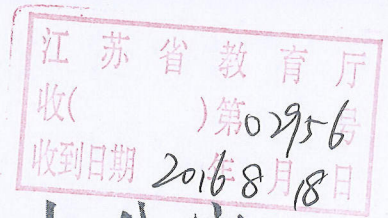 江苏省教育厅
收( )第02956号
收到日期 2016年8月18日